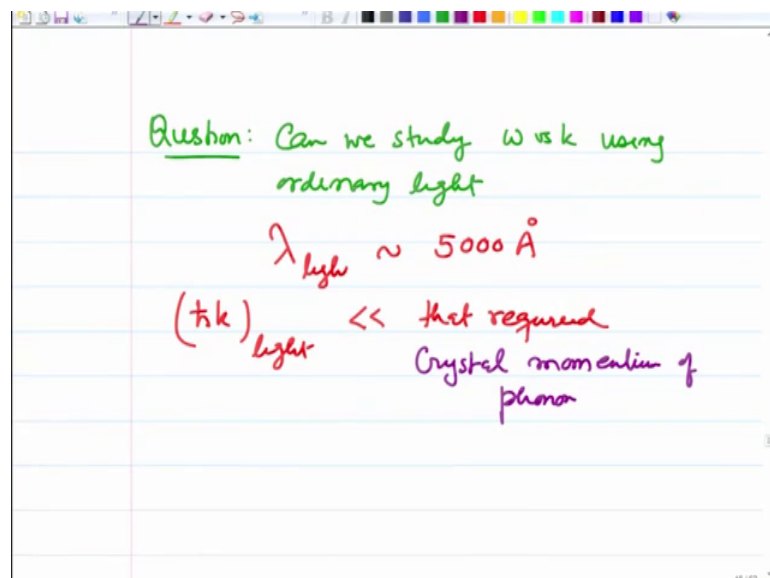 Question: Can we study ω vs k using
ordinary light
λ light ~ 5000 Å
(ħk) light << that required
Crystal momentum of
phonon